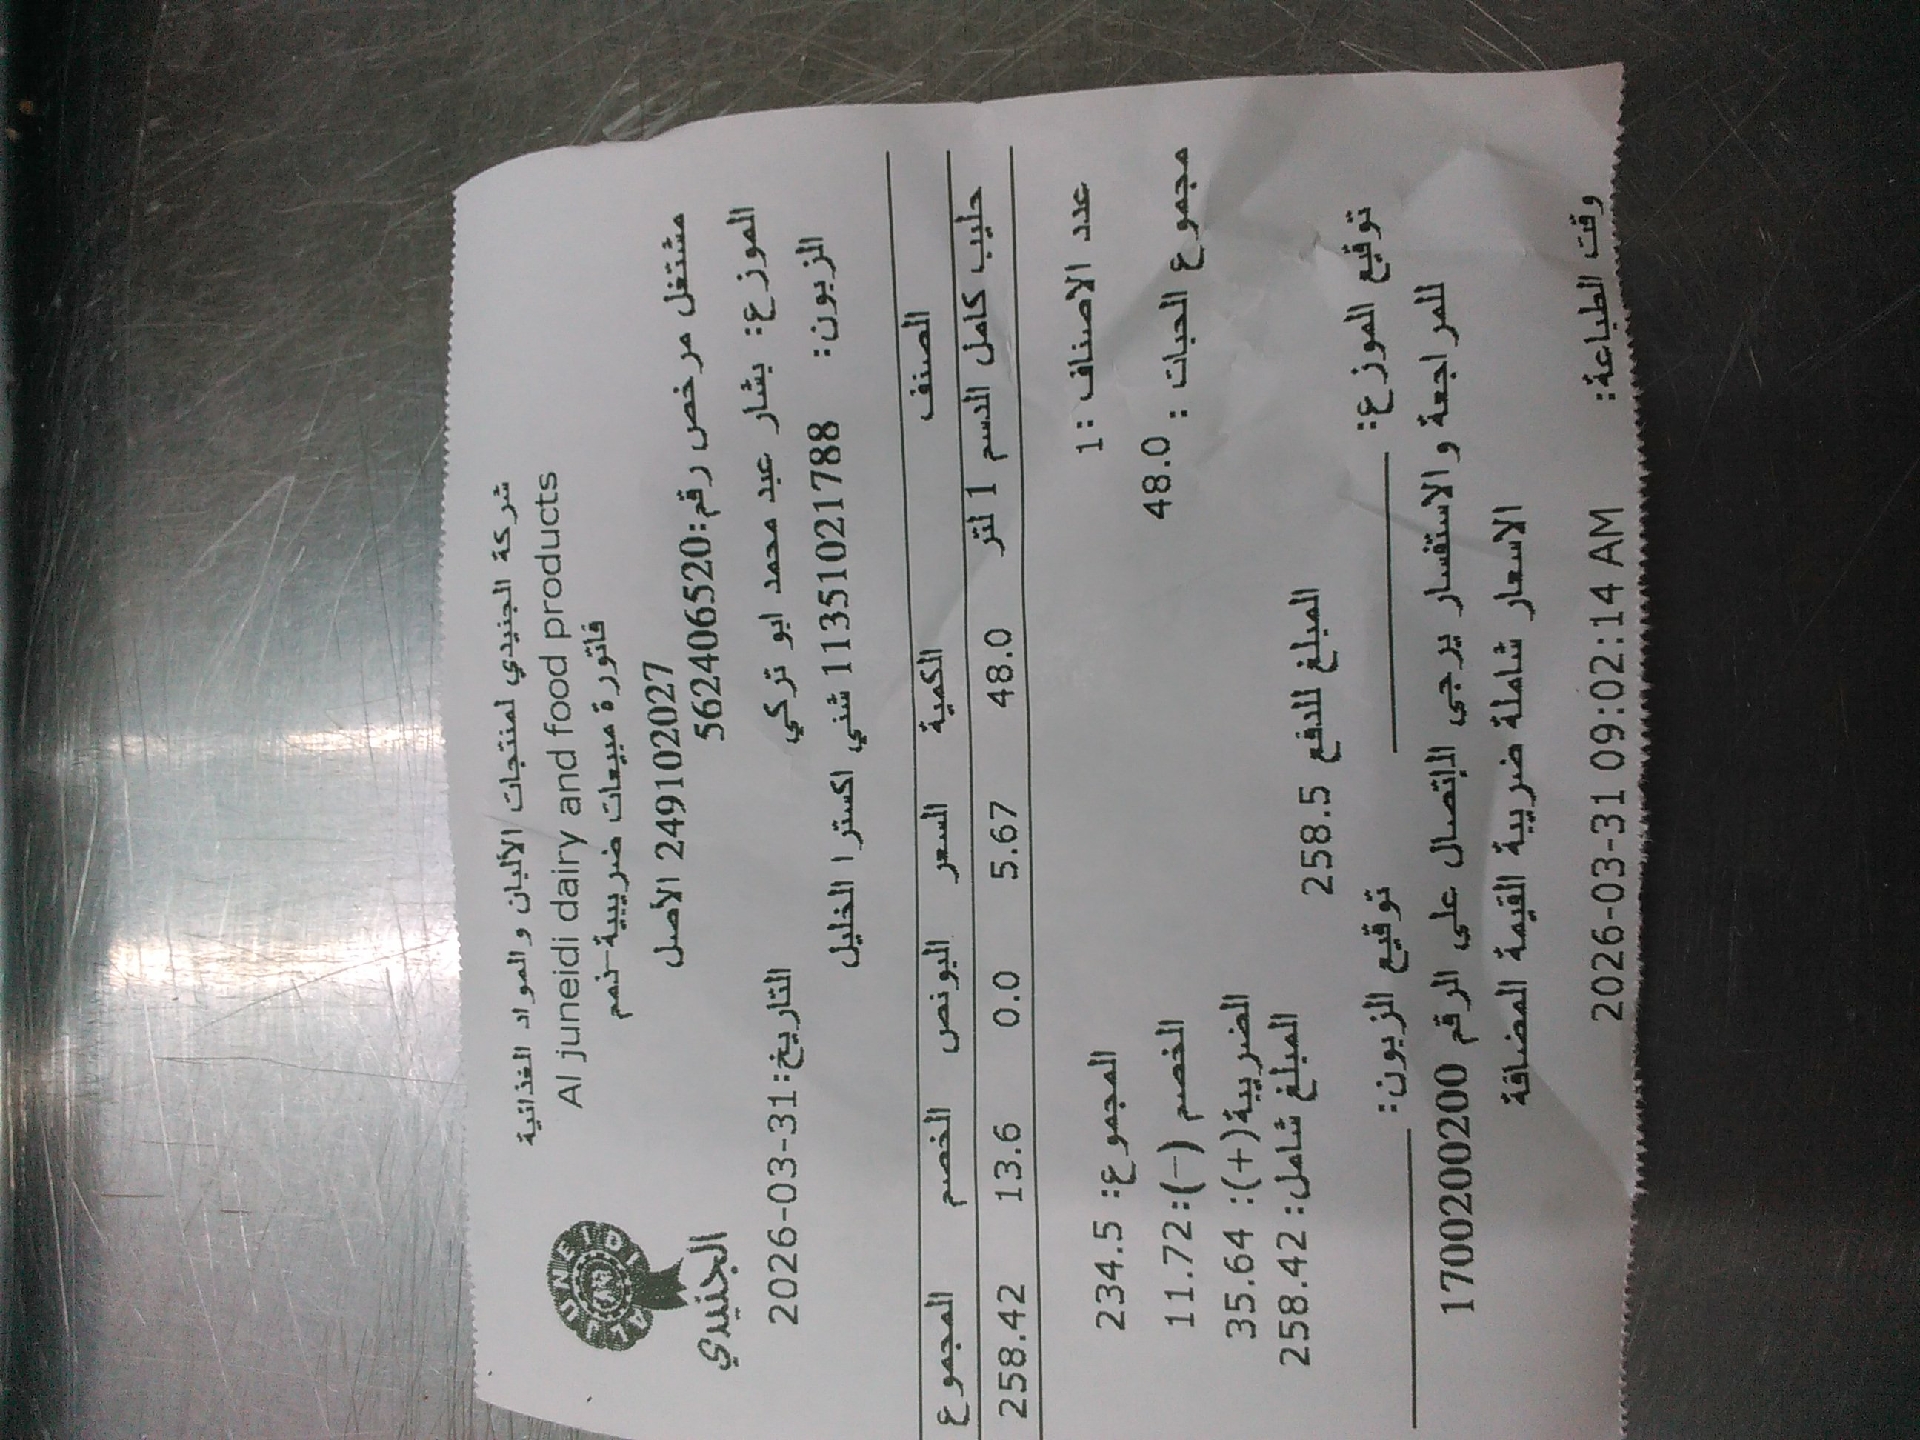 شركة الجنيدي لمنتجات الألبان والمواد الغذائية
Al juneidi dairy and food products
فاتورة مبيعات ضريبية-ذمم
249102027 الأصل
AL JUNEIDI
الجنيدي
مشتغل مرخص رقم:562406520
الموزع: بشار عبد محمد ابو تركي
التاريخ:2026-03-31
الزبون: 11351021788 شني اكسترا الخليل
الصنف الكمية السعر البونص الخصم المجموع
حليب كامل الدسم 1 لتر 48.0 5.67 0.0 13.6 258.42
عدد الاصناف :1
المجموع: 234.5
مجموع الحبات : 48.0
الخصم (-):11.72
الضريبة(+): 35.64
المبلغ شامل: 258.42
المبلغ للدفع 258.5
توقيع الموزع:
توقيع الزبون:
للمراجعة والاستفسار يرجى الإتصال على الرقم 1700200200
الاسعار شاملة ضريبة القيمة المضافة
وقت الطباعة: 2026-03-31 09:02:14 AM